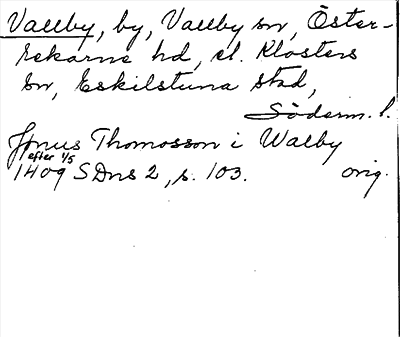 Vallby, by, Vallby sn, Öster-
rekarne hd, el. Klosters
sn, Eskilstuna stad,
Söderm. l.
Jönus Thomosson i Walby
efter 1/5
1409 SDns 2, s. 103. orig.